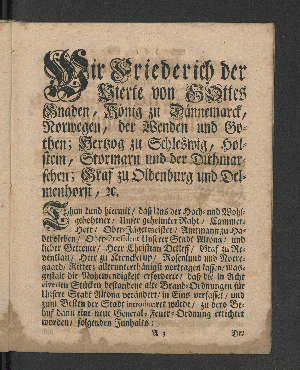 Wir Friederich der
Vierte von GOttes
Gnaden, König zu Dännemarck,
Norwegen, der Wenden und Go-
then; Hertzog zu Schleßwig, Hol-
stein, Stormarn und der Dithmar-
schen; Graf zu Oldenburg und Del-
menhorst, ꝛc.
Thun kund hiemit, daß Uns der Hoch- und Wohl-
gebohrner, Unser geheimter Raht, Kammer-
Herr, Ober-Jägermeister, Amtmann zu Ha-
dersleben, Ober-Præsident Unserer Stadt Altona, und
lieber Getreuer, Herr Christian Detleff, Graf zu Re-
ventlau, Herr zu Krenckerup, Rosenlund und
Ritter; allerunterthänigst vortragen lassen, was-
gestalt die Nohtwendigkeit erfordere, daß die in Acht
diversen Stücken bestandene alte Brand-Ordnungen für
Unsere Stadt Altona verändert, in Eins verfasset, und
zum Besten der Stadt introduciret würde, zu dero Be-
huf dann eine neue General-Feuer-Ordnung errichtet
worden, folgenden Innhalts:
A 3 Der